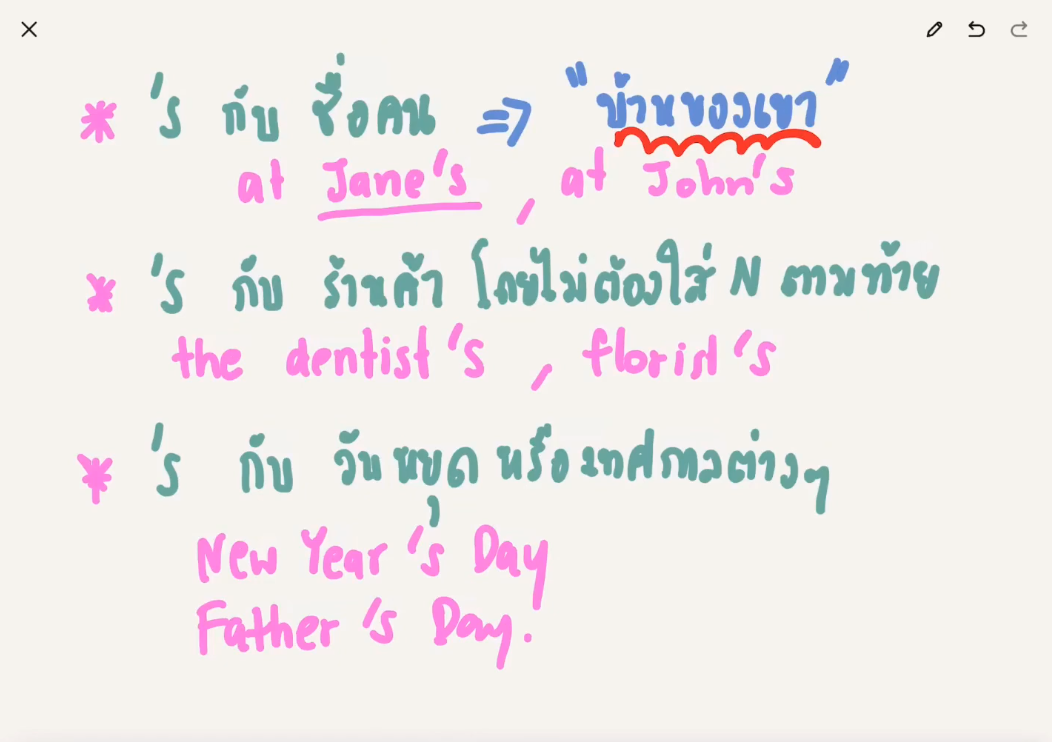 * 's กับ ชื่อคน => "บ้านของเขา"
at Jane's , at John's
* 's กับ ร้านค้า โดยไม่ต้องใส่ N ตามท้าย
the dentist's , florist's
* 's กับ วันหยุด หรือเทศกาลต่างๆ
New Year's Day
Father's Day.